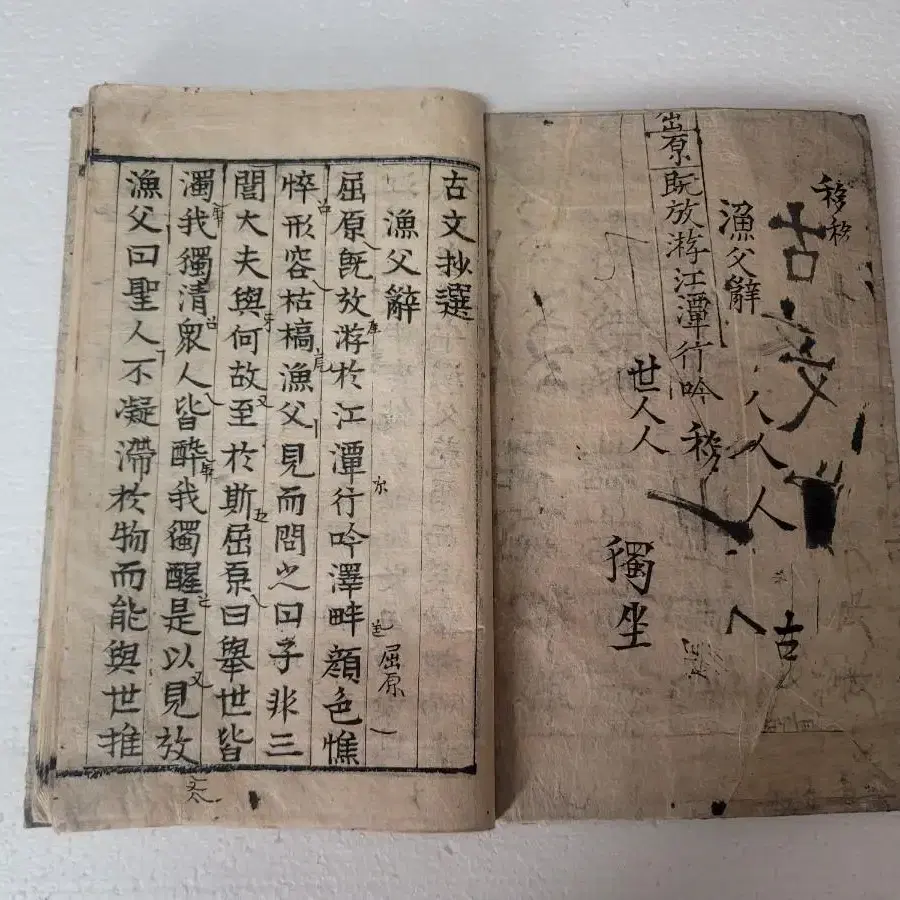 古文
古
漁父辭
人人人
屈原既放游江潭行吟
世人人
獨坐
古文抄選
漁父辭
屈原
屈原既放游於江潭行吟澤畔顔色憔
悴形容枯槁漁父見而問之曰子非三
閭大夫與何故至於斯屈原曰舉世皆
濁我獨清衆人皆醉我獨醒是以見放
漁父曰聖人不凝滯於物而能與世推